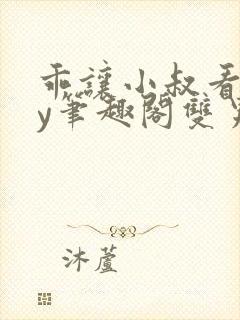 乖讓小叔看
y筆趣閣雙
沐蘆